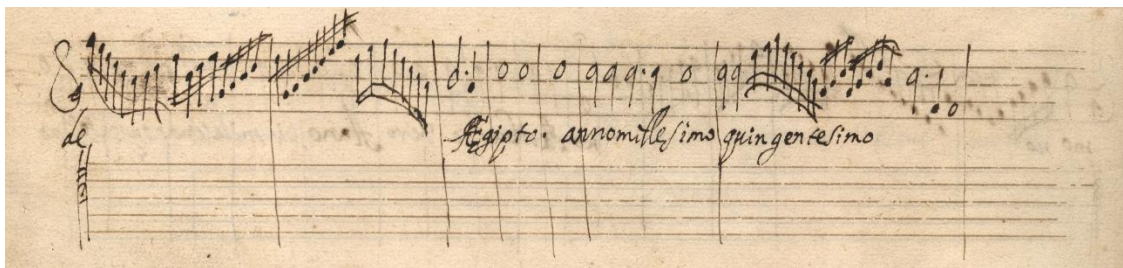 de Ægipto. anno millesimo quingentesimo